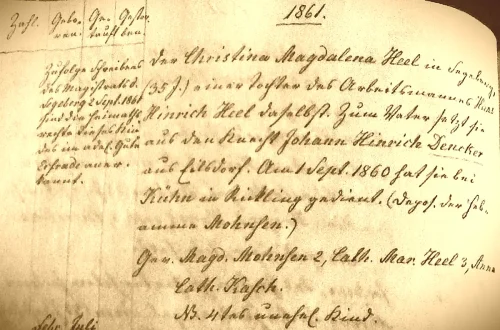 1861.
Zahl. Gebo- Ge- Gestor-
ren. tauft ben.
Zufolge Schreibens
des Magistrats
Segeberg 2 Sept. 1861
sind die Heimaths-
rechte dieses Kin-
des im adel. Gute
erkannt.
der Christina Magdalena Heel in Segeberg,
(35 J.) einer Tochter des Arbeitsmannes
Hinrich Heel daselbst. Zum Vater setzt sie
aus den Knecht Johann Hinrich Dencker
aus Eilsdorf. Sept. 1860 hat sie bei
Kühn in Rickling gedient. (Depos. der Heb-
amme Mohnsen.)
Gev. Magd. Mohnsen 2, Cath. Mar. Heel 3, Anna
Cath. Kasch.
NB. 4tes unehel. Kind.
Juli